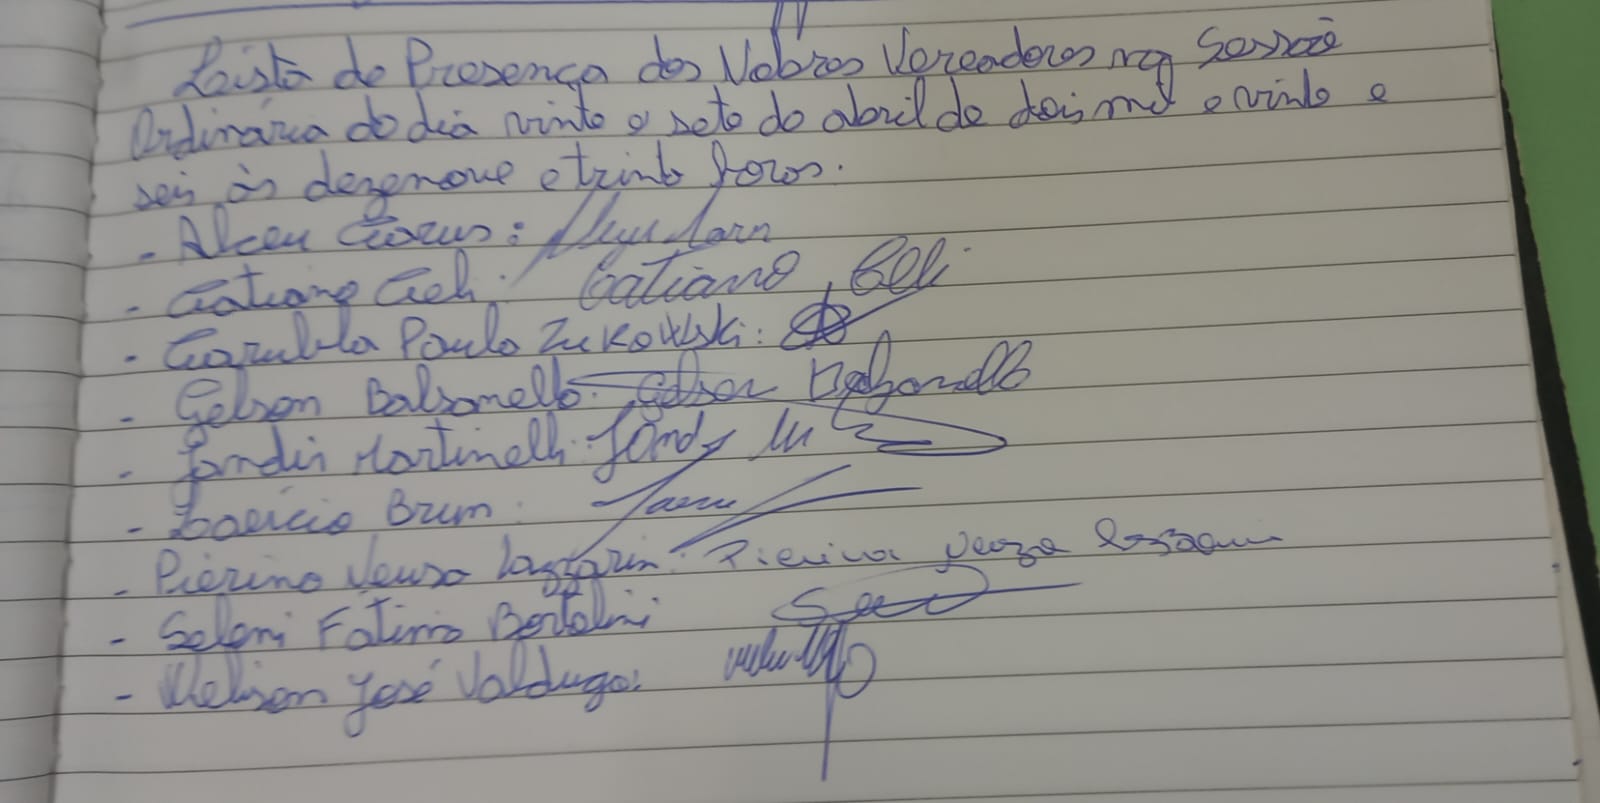 Lista de Presença dos Nobres Vereadores na Sessão
Ordinária do dia vinte e sete de abril de dois mil e vinte e
seis às dezenove e trinta horas.
- Alceu :
- Catiane Geli : Catiane Geli
- Paula Zukowski:
- Gelson Balsanello: Gelson Balsanello
- Jandir Martinelli: Jandir
- Brum :
- Pierina Neusa Lazzarin: Pierina Neuza
- Seleni Fátima Bertolini
- Nelson José Valduga: